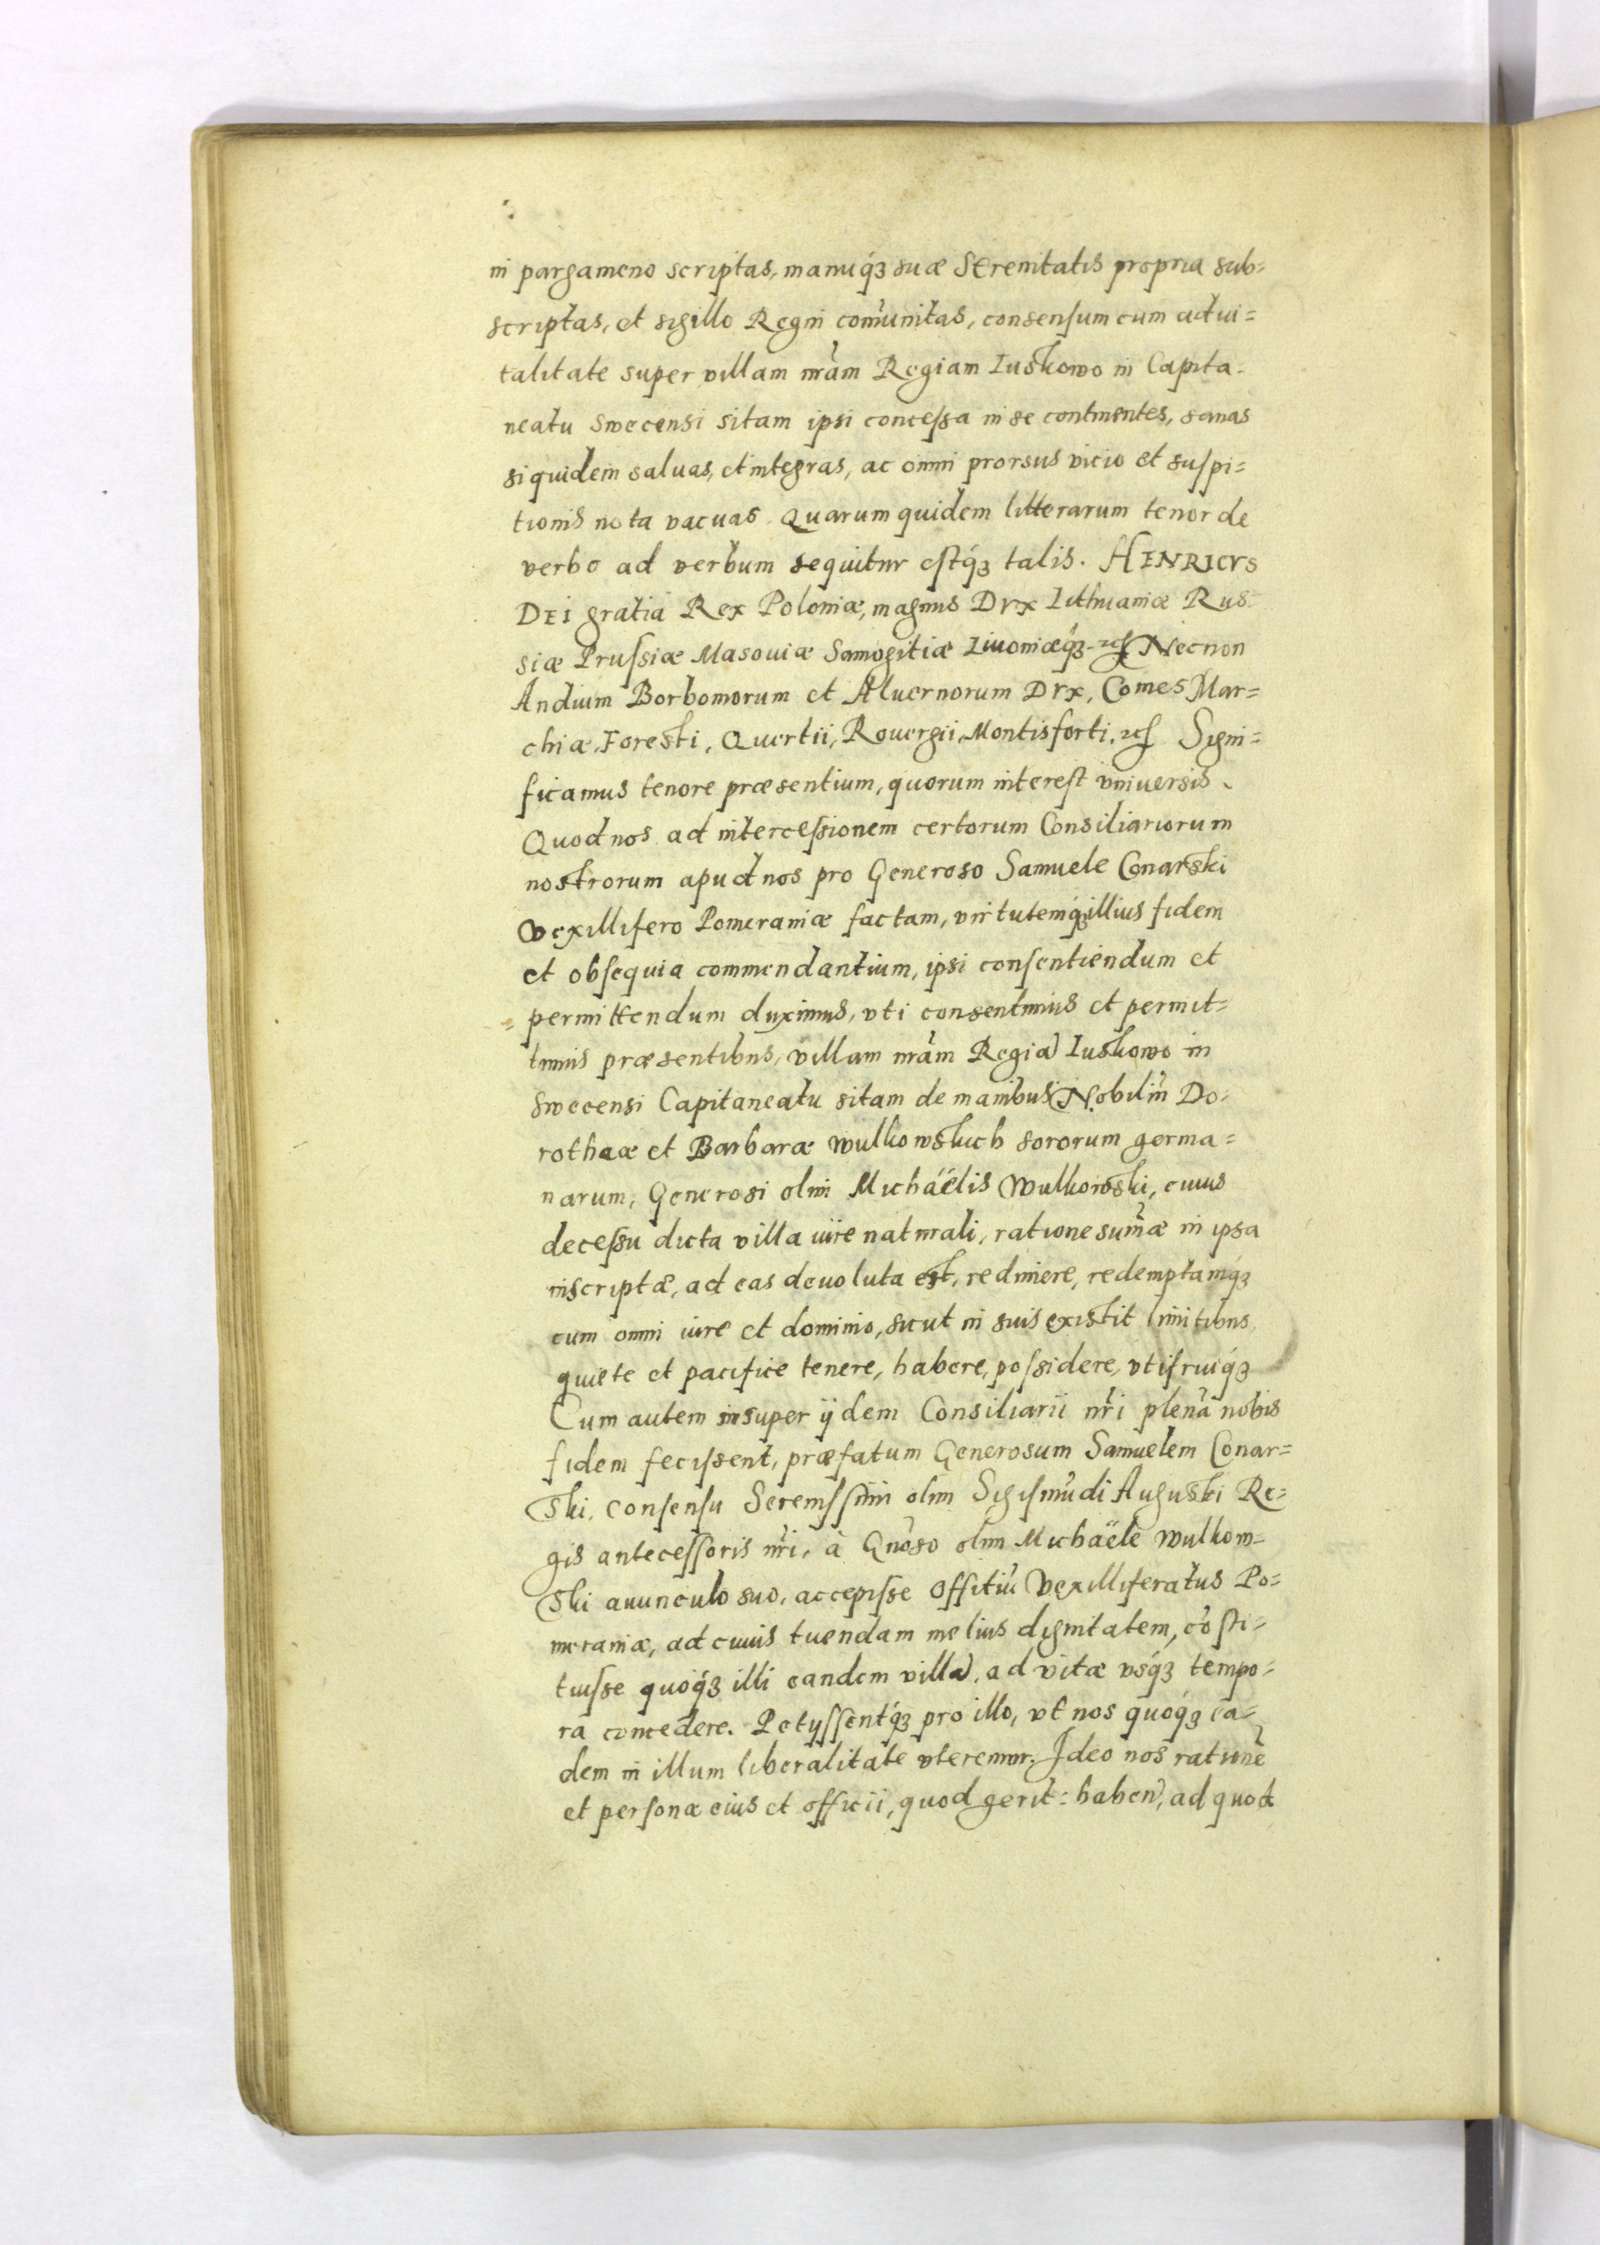 in pargameno scriptas, manuq́ȝ suæ Serenitatis propria sub=
scriptas, et sigillo Regni com̃unitas, consensum cum adui=
talitate super villam nr̃am Regiam Iuskowo in Capita=
neatu Swecensi sitam ipsi concessa in se continentes, sanas
siquidem saluas, et integras, ac omni prorsus vicio et suspi=
tionis nota vacuas. Quarum quidem litterarum tenor de
verbo ad verbum sequitur estq́ȝ talis. HENRICVS
DEI gratia Rex Poloniæ, magnus Dvx Lithuaniæ Rus=
siæ Prussiæ Masouiæ Samogitiæ Liuoniæq́ȝ Necnon
Andium Borboniorum et Aluernorum Dvx, Comes Mar=
chiæ, Foresti, Quertii, Rouergii, Montisforti, Signi=
ficamus tenore præsentium, quorum interest vniuersis.
Quod nos ad intercessionem certorum Consiliariorum
nostrorum apud nos pro Generoso Samuele Conarski
Vexillifero Pomeraniæ factam, virtutemq́ȝ illius fidem
et obsequia commendantium, ipsi consentiendum et
permittendum duximus, vti consentimus et permit=
timus præsentibus, villam nr̃am Regiã Iuskowo in
Swecensi Capitaneatu sitam de manibus Nobiliũ Do=
rotheæ et Barbaræ Wulkowskich sororum germa=
narum, Generosi olim Michäëlis Wulkowski, cuius
decessu dicta villa iure naturali, ratione sum̃æ in ipsa
inscriptæ, ad eas deuoluta est, redimere, redemptamq́ȝ
cum omni iure et dominio, sicut in suis existit limitibus
quiete et pacifice tenere, habere, possidere, vti fruiq́ȝ
Cum autem insuper ijdem Consiliarii nr̃i plenã nobis
fidem fecissent, præfatum Generosum Samuelem Conar=
ski, consensu Serenissimi olim Sigismũdi Augusti Re=
gis antecessoris nr̃i, à Gnõso olim Michäële Wulkow=
ski auunculo suo, accepisse offitiũ Vexilliferatus Po=
meraniæ, ad cuius tuendam melius dignitatem, cõsti=
tuisse quoq́ȝ illi eandem villã, ad vitæ vsq́ȝ tempo=
ra concedere. Petijssentq́ȝ pro illo, vt nos quoq́ȝ eã=
dem in illum liberalitate vteremur. Ideo nos rationẽ
et personæ eius et officii, quod gerit: haben̄, ad quod